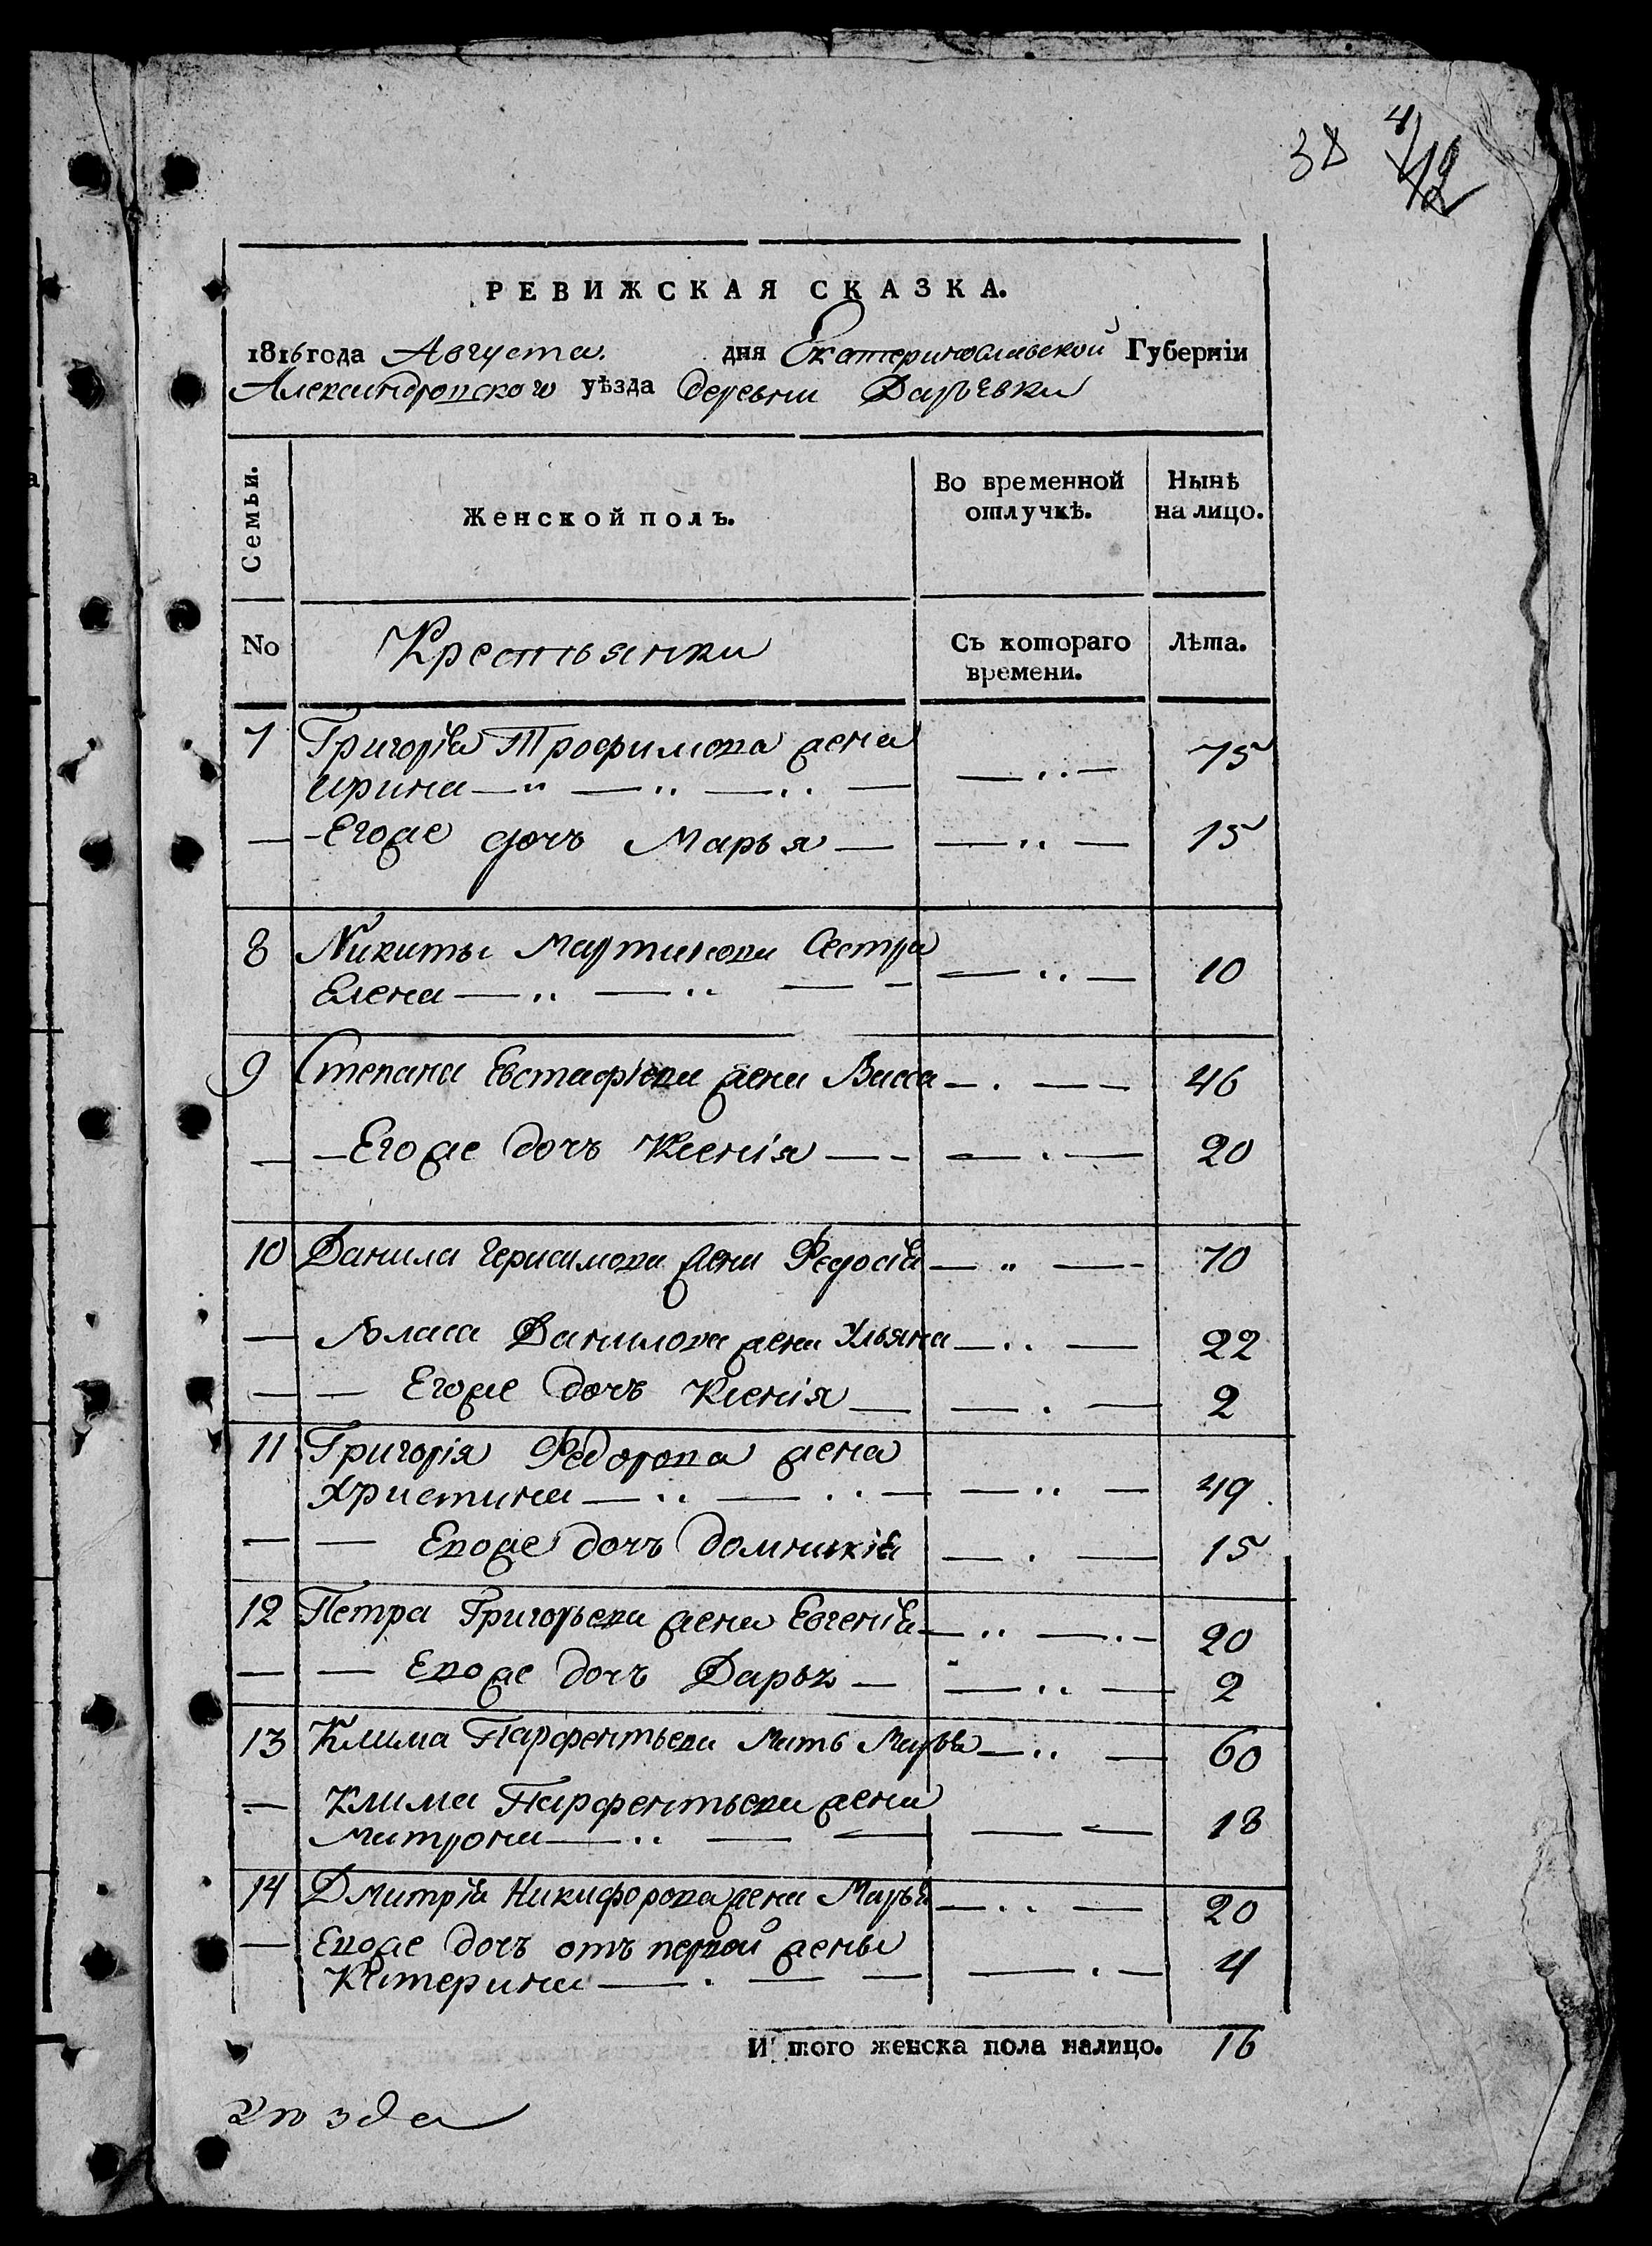 38 4/12
РЕВИЖСКАЯ СКАЗКА.
1816 года Августа дня Екатеринославской Губерніи
Александровского уѣзда деревни Дарьевки
Семьи. Женской полъ. Во временной отлучкѣ. Нынѣ на лицо.
No Крестьянки Съ котораго времени. Лѣта.
7 Григорія Трофимова жена
Ирина — " — " — .. — — .. — 75
— — Егоже дочь Марья — — .. — 15
8 Никиты Мартинова Сестра
Елена — .. — .. — - — .. — 10
9 Степана Евстафіева жена Васса — . — — 46
— — Егоже дочь Ксенія — - — . — 20
10 Данила Герасимова жена Федосія — " — - 70
— Власа Данилова жена Ульяна — .. — 22
— — Егоже дочъ Ксенія — — . — 2
11 Григорія Федорова жена
Христина — .. — .. — — .. — 49
— — Евоже дочъ Домникія — . — 15
12 Петра Григорьева жена Евгенія — .. — . - 20
— — Евоже дочъ Дарья — — .. — 2
13 Клима Парфентьева мать Марья — .. — 60
— Клима Парфентьева жена
Матрона — .. — — — — 18
14 Дмитрія Никифорова жена Марья — .. — 20
— Евоже дочъ отъ первой жены
Катерина — . — — — . — 4
И того женска пола налицо. 16
уѣзда